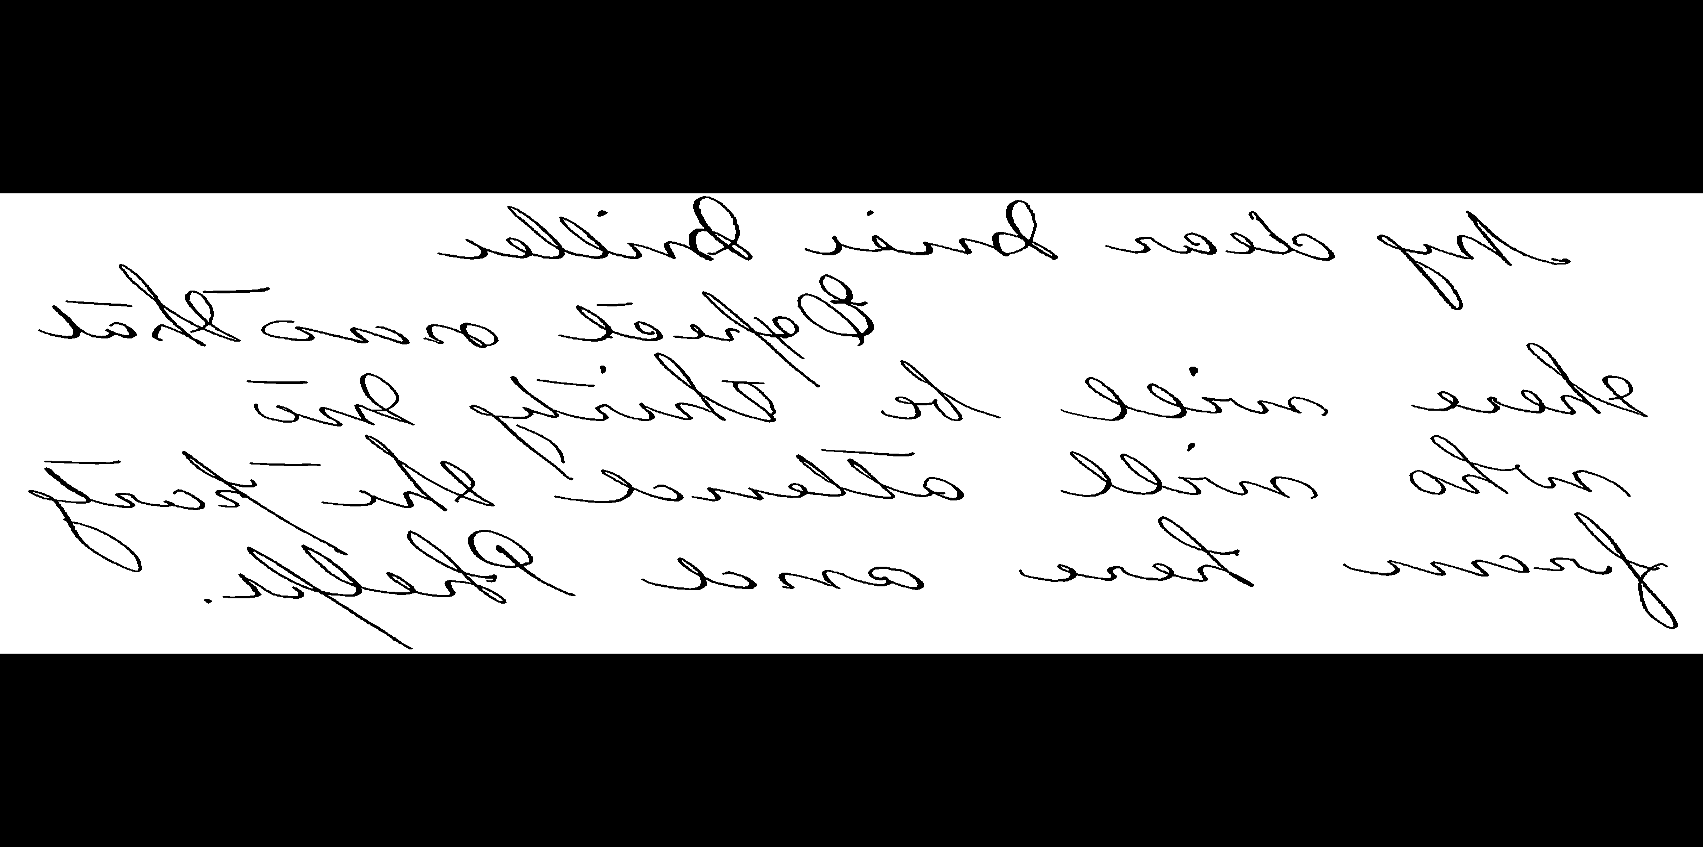 My dear Miller
Expect now that
there will be thirty two
who will attend the party
from here and Phelps.